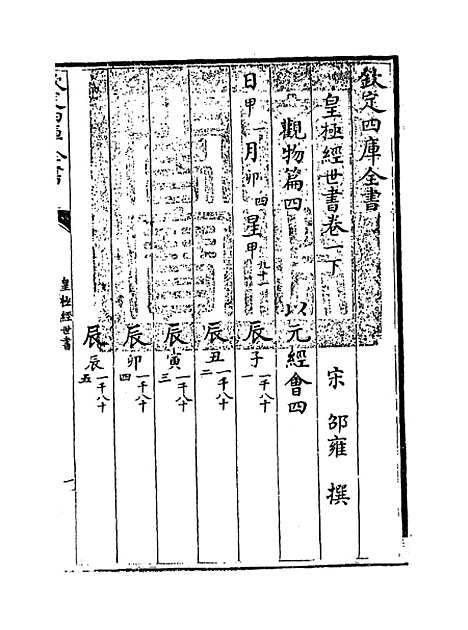 欽定四庫全書
皇極經世書卷一下
宋 邵雍 撰
觀物篇四 以元經會四
日甲一 月卯四 星甲九十一 辰子一千八十一
辰丑一千八十二
辰寅一千八十三
辰卯一千八十四
辰辰一千八十五
欽定四庫全書
皇極經世書